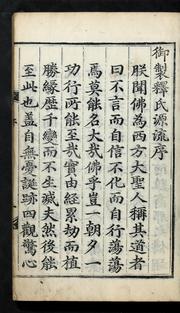 御製釋氏源流序
朕聞佛為西方大聖人稱其道者
曰不言而自信不化而自行蕩蕩
焉莫能名大哉佛乎豈一朝夕一
功行所能至哉實由經累劫而植
勝緣歷千變而不生滅夫然後能
至此也蓋自無憂誕跡四觀驚心